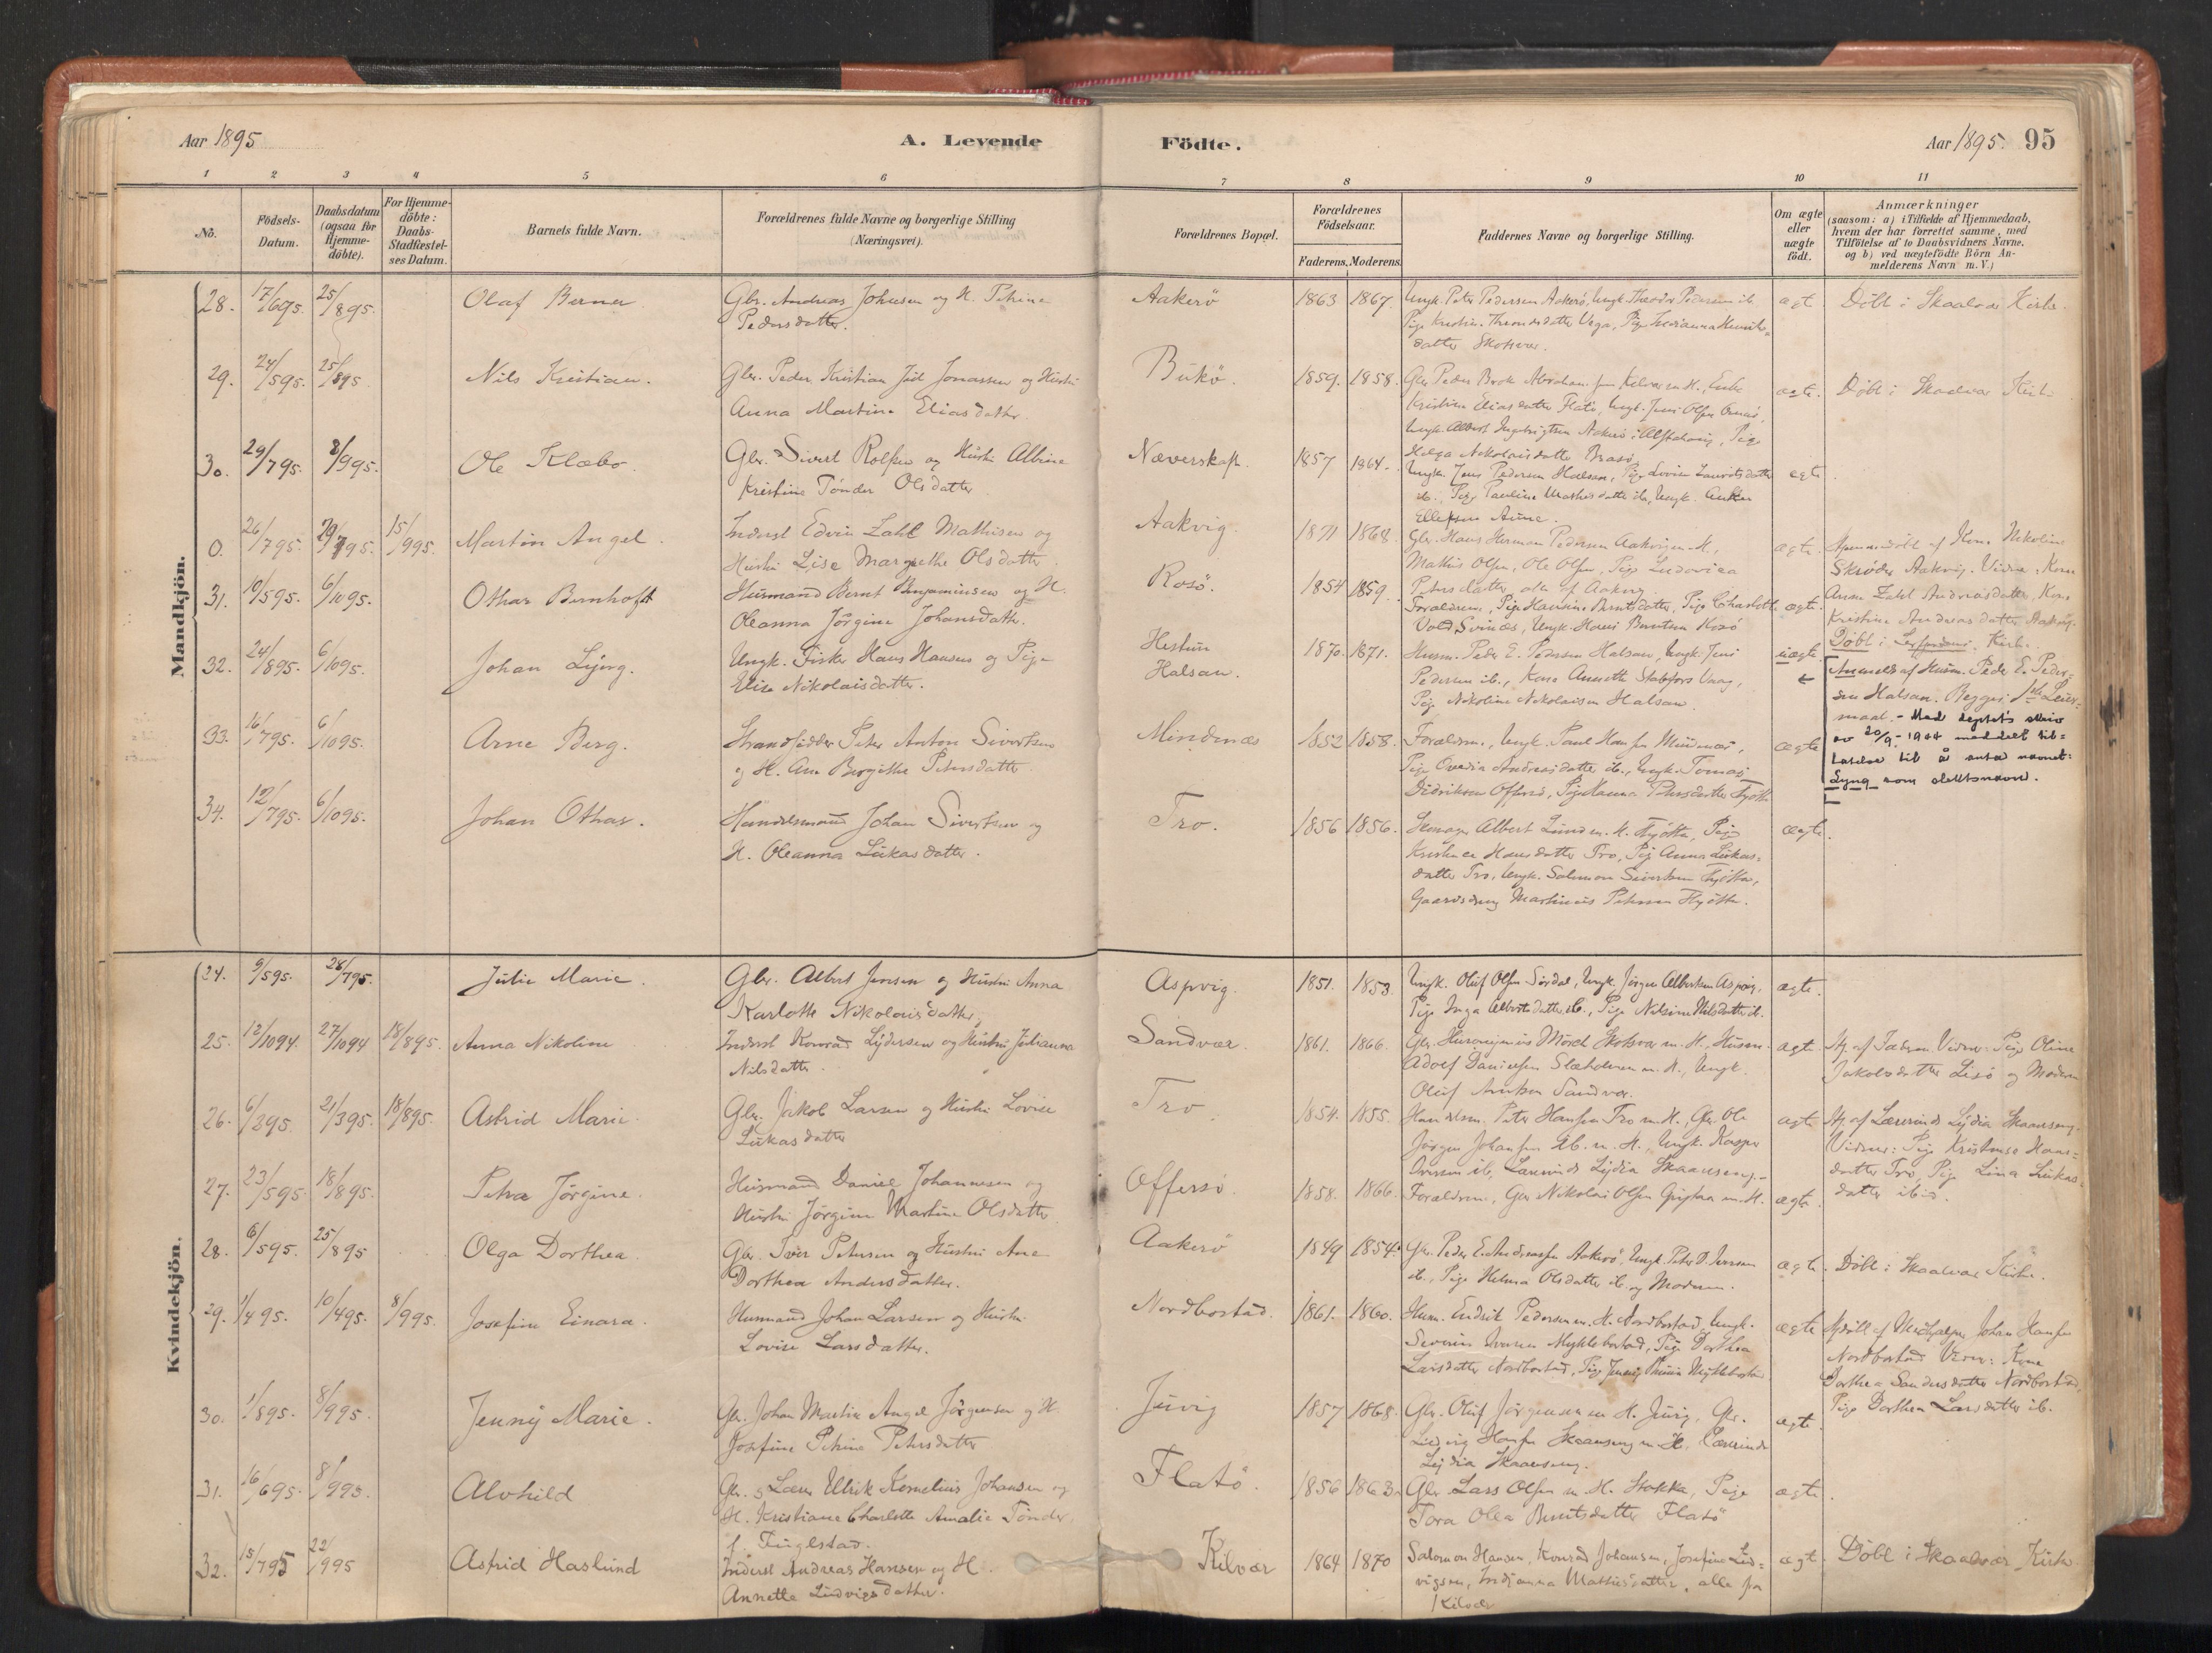 Aar 1895
A. Levende
Födte.
Aar 1895. 95
1 2 3 4 5 6 7 8 9 10 11
No.
Födsels-
Datum.
Daabsdatum
(ogsaa for
Hjemme-
döbte).
For Hjemme-
döbte:
Daabs-
Stadfæstel-
ses Datum.
Barnets fulde Navn.
Forældrenes fulde Navne og borgerlige Stilling
(Næringsvei).
Forældrenes Bopæl.
Forældrenes
Födselsaar.
Faderens. Moderens.
Faddernes Navne og borgerlige Stilling.
Om ægte
eller
uægte
födt.
Anmærkninger
(saasom: a) i Tilfælde af Hjemmedaab,
hvem der har forrettet samme, med
Tilföielse af to Daabsvidners Navne.
og b) ved uægtefödte Börn An-
melderens Navn m. V.)
Mandkjön.
28. 17/695. 25/895. Olaf Berner Gbr. Andreas Johnsen og H. Petrine
Pedersdatter.
Aakerö 1863 1867 Ungk. Peter Pedersen Aakerö, Ungk. Theodor Pedersen ib.
datter Skotsvær.
ægt. Döbt i Skaalvær Kirke.
29. 24/595. 25/895. Nils Kristian. Gbr. Peder Kristian Juel Jonassen og Hustru
Anna Martine Eliasdatter
Bukö. 1859. 1858.
Kristine Eliasdatter Flatö, Ungk. Jens Olsen
ægte. Döbt i Skaalvær Kirke
30. 29/795. 8/995. Ole Klæbo. Gbr. Sivert Rolfsen og Hustru Albrine
Kristine Tönder Olsdatter
Næverskaft. 1857 1864.
Helga Nikolaisdatter Brasö.
Ungk. Jens Pedersen Halsan, Pige Lovise Lauritsdatter
ib., Pige Pauline Mathisdatter ib., Ungk. Anker
Ellefsen Aune.
ægte.
0. 26/795. 29/795. 15/995. Martin Angel. Inderst Edvin Zahl Mathisen og
Hustru Lise Margrethe Olsdatter
Aakvig. 1871 1868. Gbr. Hans Herman Pedersen Aakvigen M.,
Mathis Olsen, Ole Olsen, Pige Ludovica
Petersdatter, alle af Aakvig.
ægte. Hjemmedöbt af Kone Nikoline
Skröder Aakvig. Vidne: Kone
Anne Zahl Andreasdatter, Kone
Kristine Andreasdatter Aakvig.
31. 10/595. 6/1095. Othar Bernhoft Husmand Bernt Benjaminsen og H.
Oleanna Jörgine Johansdatter.
Rosö. 1854 1859. Forældrene, Pige Hansine Berntsdatter, Pige Charlotte
Vold Svinæs, Ungk. Hans Berntsen Rosö
ægte.
Döbt i Kirke.
32. 24/895. 6/1095. Johan Lyng. Ungk. Fisker Hans Hansen og Pige
Elise Nikolaisdatter.
Hestun
Halsan.
1870. 1871. Husm. Peder E. Pedersen Halsan, Ungk. Jens
Pedersen ib., Kone Annette Stabfors Vaag,
Pige Nikoline Nikolaisen Halsan.
uægte
Anmeldt af Husm. Peder E. Peder-
sen Halsan. Begges 1ste Leier-
maal. - Med deptets skriv
av 20/9 - 1944 meddelt til-
latelse til å anta navnet:
Lyng som slektsnavn.
33. 16/795. 6/1095. Arne Berg. Strandsidder Peter Anton Sivertsen
og H. Ane Bergithe Petersdatter.
Mindenæs 1852 1858. Forældrene, Ungk. Paul Hansen Mindenæs,
Pige Ovedia Andreasdatter ib., Ungk. Tomas
Didriksen Offersö, Pige Hanna Petersdatter Tjötta
ægte
34. 12/795. 6/1095. Johan Othar. Handelsmand Johan Sivertsen og
H. Oleanna Lukasdatter.
Tro. 1856 1856. Albert Lund m. H. Tjötta, Pige
Hansdatter Tro, Pige Anna Lukas-
datter Tro, Ungk. Salomon Sivertsen Tjötta,
Gaardsdreng Martinus Petersen Tjötta.
ægte.
Kvindekjön.
24. 9/595. 28/795. Julie Marie. Gbr. Albert Jensen og Hustru Anna
Karlotte Nikolaisdatter.
Aspvig. 1851. 1853. Ungk. Oluf Olsen Sördal, Ungk. Jörgen Albertsen Aspvig,
Pige Inga Albertsdatter ib., Pige Nilsine Nilsdatter ib.
ægte.
25. 12/1094. 27/1094 18/895. Anna Nikoline Inderst Konrad Lydersen og Hustru Julianna
Nilsdatter.
Sandvær. 1861. 1866. Gbr. Hieronymus Mörch Skotsvær m. H., Husm.
Adolf Danielsen Slæholmen m. H., Ungk.
Oluf Arntsen Sandvær.
ægte. Hj. af Faderen. Vidner: Pige Oline
Jakobsdatter Lisö og Moderen
26. 6/295. 21/395. 18/895. Astrid Marie. Gbr. Jakob Larsen og Hustru Lovise
Lukasdatter
Tro 1854. 1855. Handelsm. Peter Hansen Tro m. H., Gbr. Ole
Jörgen Johansen ib. m. H., Ungk. Kasper
Iversen ib., Lærerinde Lydia Skaanseng.
ægte Hj. af Lærerinde Lydia Skaanseng.
Vidner: Pige Kristense Hans-
datter Tro, Pige Lina Lukas-
datter ibid.
27. 23/595. 18/895. Petra Jörgine. Husmand Daniel Johannesen og
Hustru Jörgine Martine Olsdatter.
Offersö. 1858. 1866. Forældrene, Gbr. Nikolai Olsen m. H.
ægte.
28. 6/595. 25/895 Olga Dorthea. Gbr. Iver Petersen og Hustru Ane
Dorthea Andersdatter.
Aakerö 1849 1854. Gbr. Peder E. Andreassen Aakerö, Ungk. Peter D. Iversen
ib., Pige Helma Olsdatter ib. og Moderen.
ægte. Döbt i Skaalvær Kirke.
29. 1/495. 10/495. 8/995. Josefine Einara. Husmand Johan Larsen og Hustru
Lovise Larsdatter.
Nordbostad. 1861. 1860. Husm. Endrik Pedersen m. H. Nordbostad, Ungk.
Severin Iversen Myklebostad, Pige Dorthea
Larsdatter Nordbostad, Pige Jenny Myklebostad
ægte Hjdöbt af Johan Hansen
Nordbostad. Vidner: Kone
Dorthea Sandersdatter Nordbostad,
Pige Dorthea Larsdatter ib.
30. 1/895. 8/995. Jenny Marie. Gbr. Johan Martin Angel Jörgensen og H.
Josefine Petrine Petersdatter
Juvig 1857 1868. Gbr. Oluf Jörgensen m. H. Juvig, Gbr.
Ludvig Hansen Skaanseng m. H., Lærerinde
Lydia Skaanseng.
ægte.
31. 16/695. 8/995. Alvhild Gbr. & Lærer Ulrik Kornelius Johansen og
H. Kristiane Charlotte Amalie Tönder,
f. Tinglstad.
Flatö. 1856 1863. Gbr. Lars Olsen m. H. Stokka, Pige
Tora Olea Berntsdatter Flatö
ægte.
32. 15/795 22/995 Astrid Haslund Inderst Andreas Hansen og H.
Annette Ludvigsdatter.
Kilvær 1864 1870 Salomon Hansen, Konrad Johansen, Josefine Lud-
vigsen, Indianna Mathisdatter, alle fra
Kilvær
ægt. Döbt i Skaalvær Kirke